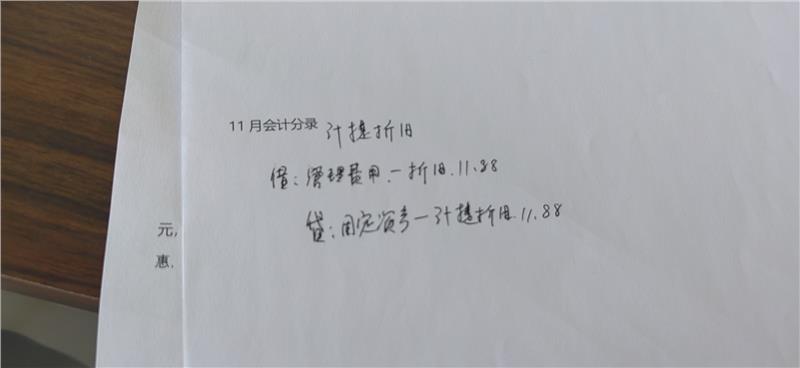 11 月会计分录 计提折旧
借：管理费用－折旧.11.88
贷：固定资产－计提折旧.11.88
元,
惠.